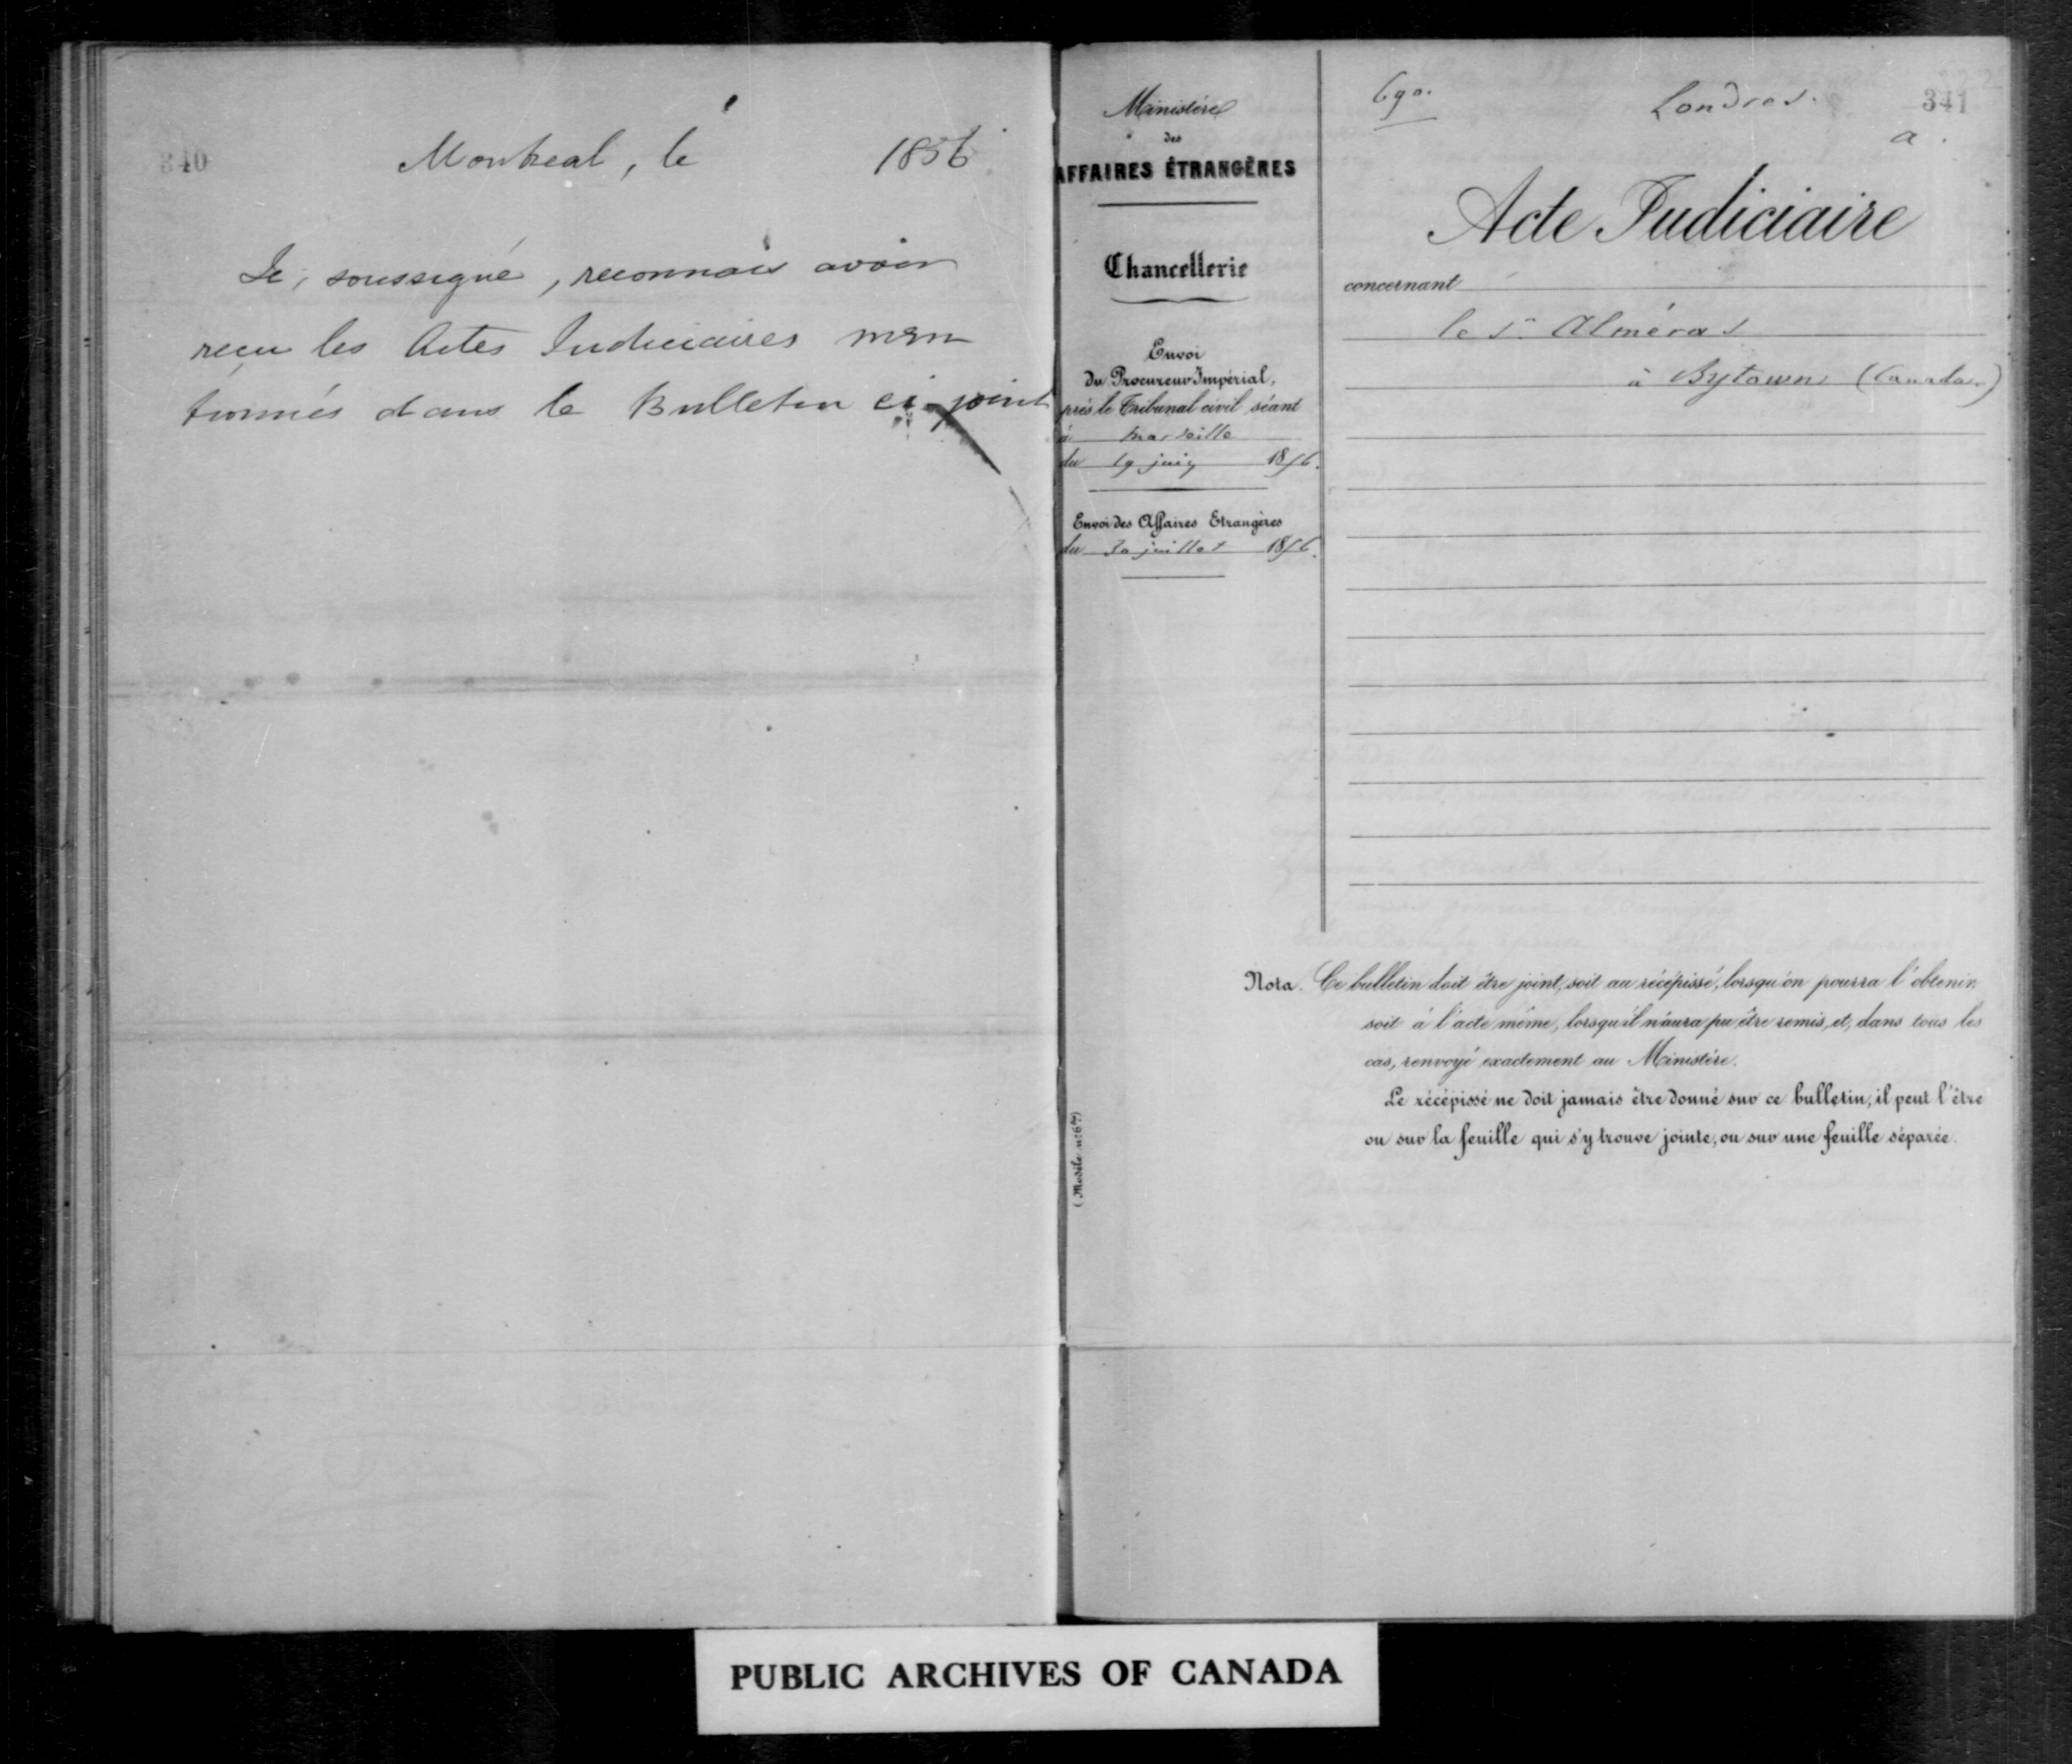 340
Montreal, le 1856
Je, soussigné, reconnais avoir
reçu les Actes Judiciaires men
tionnés dans le Bulletin ci-joint
Ministère
des
AFFAIRES ÉTRANGÈRES
Chancellerie
Envoi
du Procureur Impérial,
près le Tribunal civil séant
à Marseille
du 19 juin 1856.
Envoi des Affaires Etrangères
du juillet 1856.
Londres. 341
a.
Acte Judiciaire
concernant
le Sr. Alméras
à Bytown (Canada)
Nota. Ce bulletin doit être joint, soit au récépissé, lorsqu'on pourra l'obtenir,
soit à l'acte même, lorsqu'il n'aura pu être remis, et, dans tous les
cas, renvoyé exactement au Ministère.
Le récépissé ne doit jamais être donné sur ce bulletin; il peut l'être
ou sur la feuille qui s'y trouve jointe, ou sur une feuille séparée.
PUBLIC ARCHIVES OF CANADA